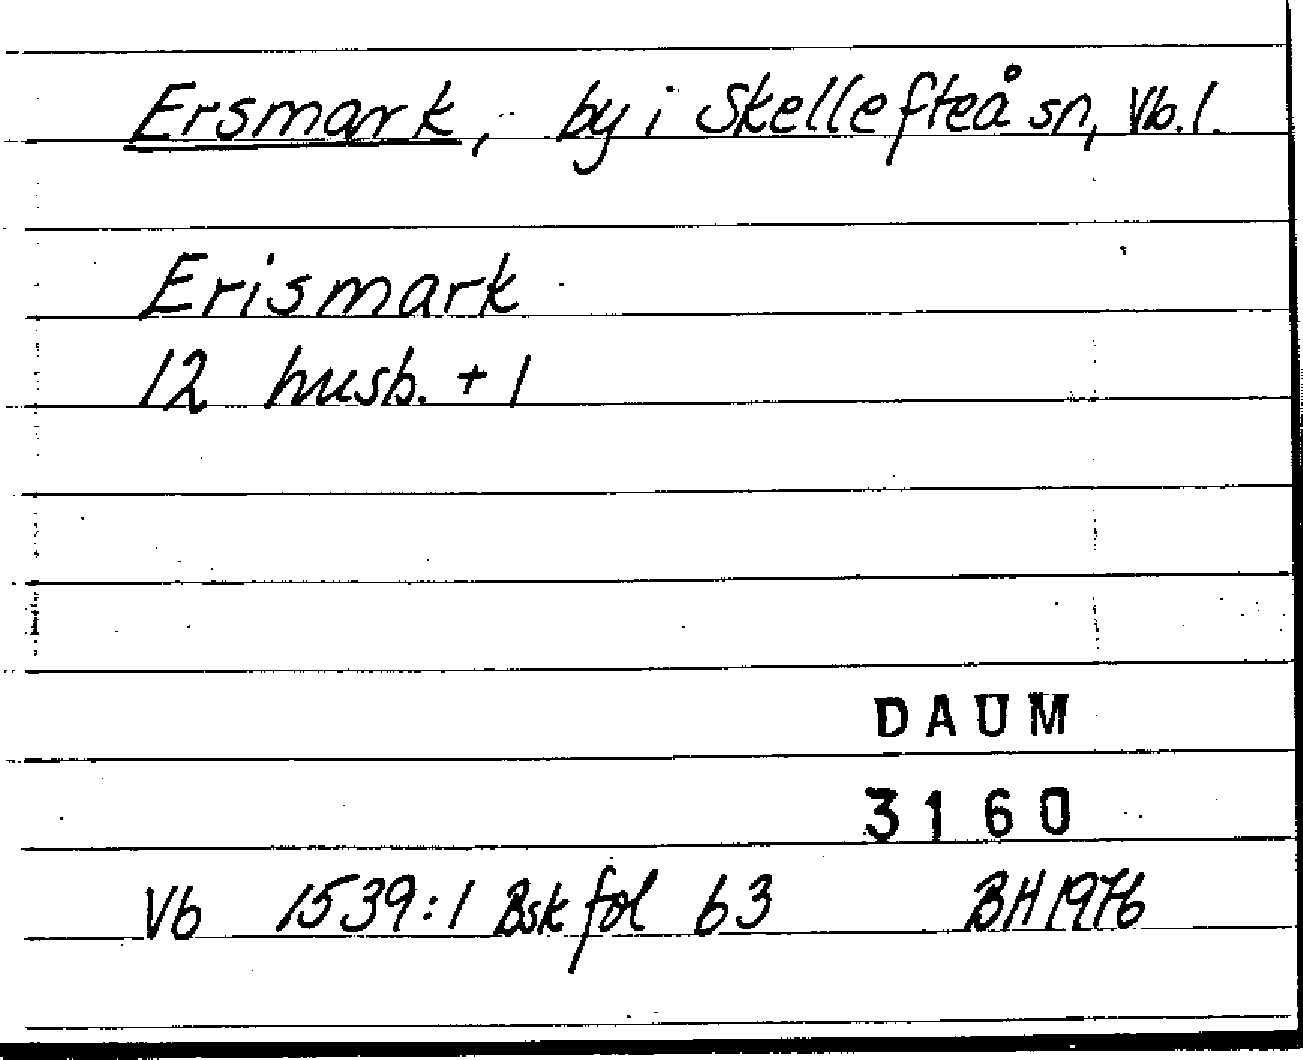 Ersmark, by i Skellefteå sn, Vb. l.
Erismark
12 husb. + 1
DAUM
3160
Vb 1539:1 Bsk fol 63 BH 1976